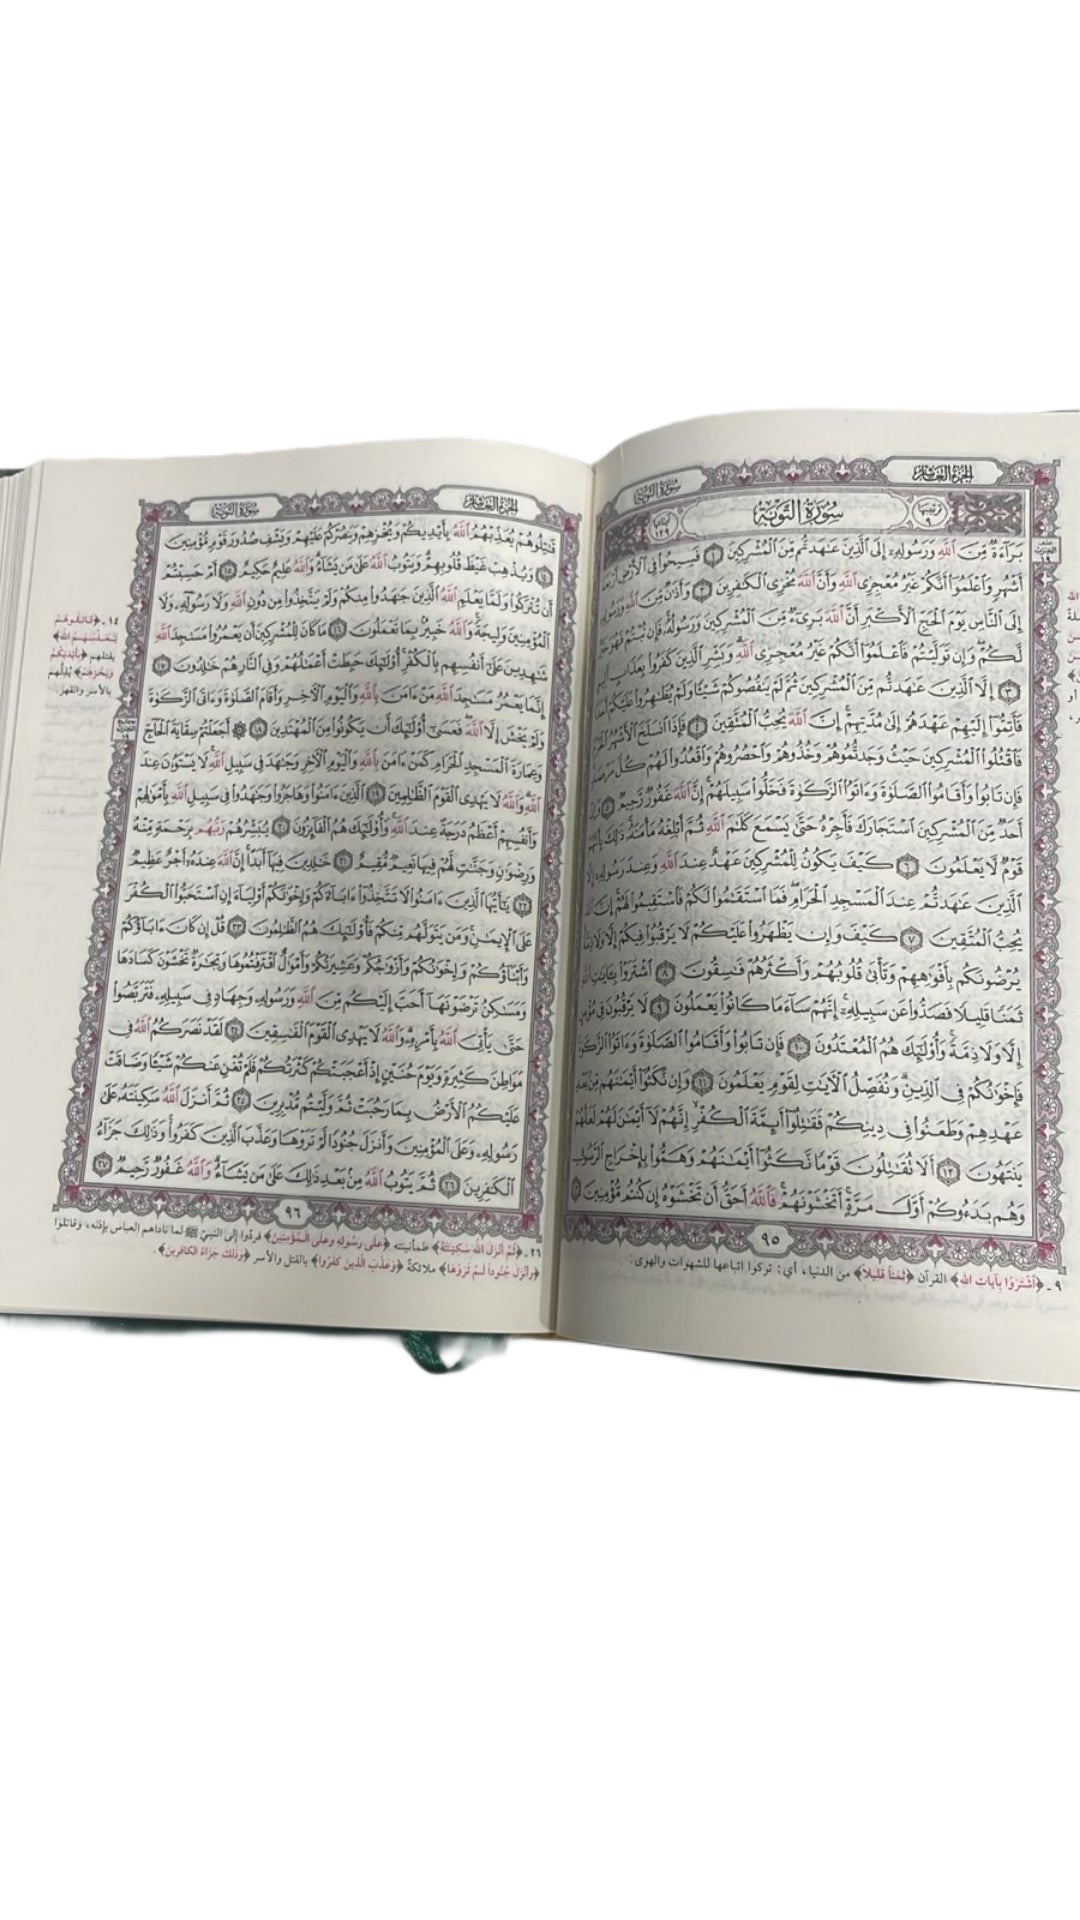 سورة التوبة
الجزء العاشر
ترتيبها ٩
سُورَةُ التَّوْبَةِ
آياتها ١٢٩
بَرَآءَةٌ مِّنَ ٱللَّهِ وَرَسُولِهِۦٓ إِلَى ٱلَّذِينَ عَٰهَدتُّم مِّنَ ٱلْمُشْرِكِينَ ١ فَسِيحُوا۟ فِى ٱلْأَرْضِ
أَشْهُرٍ وَٱعْلَمُوٓا۟ أَنَّكُمْ غَيْرُ مُعْجِزِى ٱللَّهِ وَأَنَّ ٱللَّهَ مُخْزِى ٱلْكَٰفِرِينَ ٢ وَأَذَٰنٌ مِّنَ ٱللَّهِ
إِلَى ٱلنَّاسِ يَوْمَ ٱلْحَجِّ ٱلْأَكْبَرِ أَنَّ ٱللَّهَ بَرِىٓءٌ مِّنَ ٱلْمُشْرِكِينَ وَرَسُولُهُۥ فَإِن تُبْتُمْ فَهُوَ
لَّكُمْ وَإِن تَوَلَّيْتُمْ فَٱعْلَمُوٓا۟ أَنَّكُمْ غَيْرُ مُعْجِزِى ٱللَّهِ وَبَشِّرِ ٱلَّذِينَ كَفَرُوا۟ بِعَذَابٍ أَلِيمٍ
٣ إِلَّا ٱلَّذِينَ عَٰهَدتُّم مِّنَ ٱلْمُشْرِكِينَ ثُمَّ لَمْ يَنقُصُوكُمْ شَيْـًٔا وَلَمْ يُظَٰهِرُوا۟ عَلَيْكُمْ
فَأَتِمُّوٓا۟ إِلَيْهِمْ عَهْدَهُمْ إِلَىٰ مُدَّتِهِمْ إِنَّ ٱللَّهَ يُحِبُّ ٱلْمُتَّقِينَ ٤ فَإِذَا ٱنسَلَخَ ٱلْأَشْهُرُ
فَٱقْتُلُوا۟ ٱلْمُشْرِكِينَ حَيْثُ وَجَدتُّمُوهُمْ وَخُذُوهُمْ وَٱحْصُرُوهُمْ وَٱقْعُدُوا۟ لَهُمْ كُلَّ مَرْصَدٍ
فَإِن تَابُوا۟ وَأَقَامُوا۟ ٱلصَّلَوٰةَ وَءَاتَوُا۟ ٱلزَّكَوٰةَ فَخَلُّوا۟ سَبِيلَهُمْ إِنَّ ٱللَّهَ غَفُورٌ رَّحِيمٌ ٥ وَإِنْ
أَحَدٌ مِّنَ ٱلْمُشْرِكِينَ ٱسْتَجَارَكَ فَأَجِرْهُ حَتَّىٰ يَسْمَعَ كَلَٰمَ ٱللَّهِ ثُمَّ أَبْلِغْهُ مَأْمَنَهُۥ ذَٰلِكَ بِأَنَّهُمْ
قَوْمٌ لَّا يَعْلَمُونَ ٦ كَيْفَ يَكُونُ لِلْمُشْرِكِينَ عَهْدٌ عِندَ ٱللَّهِ وَعِندَ رَسُولِهِۦٓ إِلَّا
ٱلَّذِينَ عَٰهَدتُّمْ عِندَ ٱلْمَسْجِدِ ٱلْحَرَامِ فَمَا ٱسْتَقَٰمُوا۟ لَكُمْ فَٱسْتَقِيمُوا۟ لَهُمْ إِنَّ ٱللَّهَ
يُحِبُّ ٱلْمُتَّقِينَ ٧ كَيْفَ وَإِن يَظْهَرُوا۟ عَلَيْكُمْ لَا يَرْقُبُوا۟ فِيكُمْ إِلًّا وَلَا ذِمَّةً
يُرْضُونَكُم بِأَفْوَٰهِهِمْ وَتَأْبَىٰ قُلُوبُهُمْ وَأَكْثَرُهُمْ فَٰسِقُونَ ٨ ٱشْتَرَوْا۟ بِـَٔايَٰتِ ٱللَّهِ
ثَمَنًا قَلِيلًا فَصَدُّوا۟ عَن سَبِيلِهِۦٓ إِنَّهُمْ سَآءَ مَا كَانُوا۟ يَعْمَلُونَ ٩ لَا يَرْقُبُونَ فِى مُؤْمِنٍ
إِلًّا وَلَا ذِمَّةً وَأُو۟لَٰٓئِكَ هُمُ ٱلْمُعْتَدُونَ ١٠ فَإِن تَابُوا۟ وَأَقَامُوا۟ ٱلصَّلَوٰةَ وَءَاتَوُا۟ ٱلزَّكَوٰةَ
فَإِخْوَٰنُكُمْ فِى ٱلدِّينِ وَنُفَصِّلُ ٱلْـَٔايَٰتِ لِقَوْمٍ يَعْلَمُونَ ١١ وَإِن نَّكَثُوٓا۟ أَيْمَٰنَهُم مِّنۢ بَعْدِ
عَهْدِهِمْ وَطَعَنُوا۟ فِى دِينِكُمْ فَقَٰتِلُوٓا۟ أَئِمَّةَ ٱلْكُفْرِ إِنَّهُمْ لَآ أَيْمَٰنَ لَهُمْ لَعَلَّهُمْ
يَنتَهُونَ ١٢ أَلَا تُقَٰتِلُونَ قَوْمًا نَّكَثُوٓا۟ أَيْمَٰنَهُمْ وَهَمُّوا۟ بِإِخْرَاجِ ٱلرَّسُولِ
وَهُم بَدَءُوكُمْ أَوَّلَ مَرَّةٍ أَتَخْشَوْنَهُمْ فَٱللَّهُ أَحَقُّ أَن تَخْشَوْهُ إِن كُنتُم مُّؤْمِنِينَ
٩٥
٩ - ﴿اشْتَرَوْا بِآيَاتِ الله﴾ القرآن ﴿ثَمَناً قَلِيلاً﴾ من الدنيا، أي: تركوا اتباعها للشهوات والهوى.
سورة التوبة
الجزء العاشر
قَٰتِلُوهُمْ يُعَذِّبْهُمُ ٱللَّهُ بِأَيْدِيكُمْ وَيُخْزِهِمْ وَيَنصُرْكُمْ عَلَيْهِمْ وَيَشْفِ صُدُورَ قَوْمٍ مُّؤْمِنِينَ
١٤ وَيُذْهِبْ غَيْظَ قُلُوبِهِمْ وَيَتُوبُ ٱللَّهُ عَلَىٰ مَن يَشَآءُ وَٱللَّهُ عَلِيمٌ حَكِيمٌ ١٥ أَمْ حَسِبْتُمْ
أَن تُتْرَكُوا۟ وَلَمَّا يَعْلَمِ ٱللَّهُ ٱلَّذِينَ جَٰهَدُوا۟ مِنكُمْ وَلَمْ يَتَّخِذُوا۟ مِن دُونِ ٱللَّهِ وَلَا رَسُولِهِۦ وَلَا
ٱلْمُؤْمِنِينَ وَلِيجَةً وَٱللَّهُ خَبِيرٌۢ بِمَا تَعْمَلُونَ ١٦ مَا كَانَ لِلْمُشْرِكِينَ أَن يَعْمُرُوا۟ مَسَٰجِدَ ٱللَّهِ
شَٰهِدِينَ عَلَىٰٓ أَنفُسِهِم بِٱلْكُفْرِ أُو۟لَٰٓئِكَ حَبِطَتْ أَعْمَٰلُهُمْ وَفِى ٱلنَّارِ هُمْ خَٰلِدُونَ ١٧
إِنَّمَا يَعْمُرُ مَسَٰجِدَ ٱللَّهِ مَنْ ءَامَنَ بِٱللَّهِ وَٱلْيَوْمِ ٱلْـَٔاخِرِ وَأَقَامَ ٱلصَّلَوٰةَ وَءَاتَى ٱلزَّكَوٰةَ
وَلَمْ يَخْشَ إِلَّا ٱللَّهَ فَعَسَىٰٓ أُو۟لَٰٓئِكَ أَن يَكُونُوا۟ مِنَ ٱلْمُهْتَدِينَ ١٨ ۞ أَجَعَلْتُمْ سِقَايَةَ ٱلْحَآجِّ
وَعِمَارَةَ ٱلْمَسْجِدِ ٱلْحَرَامِ كَمَنْ ءَامَنَ بِٱللَّهِ وَٱلْيَوْمِ ٱلْـَٔاخِرِ وَجَٰهَدَ فِى سَبِيلِ ٱللَّهِ لَا يَسْتَوُۥنَ عِندَ
ٱللَّهِ وَٱللَّهُ لَا يَهْدِى ٱلْقَوْمَ ٱلظَّٰلِمِينَ ١٩ ٱلَّذِينَ ءَامَنُوا۟ وَهَاجَرُوا۟ وَجَٰهَدُوا۟ فِى سَبِيلِ ٱللَّهِ بِأَمْوَٰلِهِمْ
وَأَنفُسِهِمْ أَعْظَمُ دَرَجَةً عِندَ ٱللَّهِ وَأُو۟لَٰٓئِكَ هُمُ ٱلْفَآئِزُونَ ٢٠ يُبَشِّرُهُمْ رَبُّهُم بِرَحْمَةٍ مِّنْهُ
وَرِضْوَٰنٍ وَجَنَّٰتٍ لَّهُمْ فِيهَا نَعِيمٌ مُّقِيمٌ ٢١ خَٰلِدِينَ فِيهَآ أَبَدًا إِنَّ ٱللَّهَ عِندَهُۥٓ أَجْرٌ عَظِيمٌ
٢٢ يَٰٓأَيُّهَا ٱلَّذِينَ ءَامَنُوا۟ لَا تَتَّخِذُوٓا۟ ءَابَآءَكُمْ وَإِخْوَٰنَكُمْ أَوْلِيَآءَ إِنِ ٱسْتَحَبُّوا۟ ٱلْكُفْرَ
عَلَى ٱلْإِيمَٰنِ وَمَن يَتَوَلَّهُم مِّنكُمْ فَأُو۟لَٰٓئِكَ هُمُ ٱلظَّٰلِمُونَ ٢٣ قُلْ إِن كَانَ ءَابَآؤُكُمْ
وَأَبْنَآؤُكُمْ وَإِخْوَٰنُكُمْ وَأَزْوَٰجُكُمْ وَعَشِيرَتُكُمْ وَأَمْوَٰلٌ ٱقْتَرَفْتُمُوهَا وَتِجَٰرَةٌ تَخْشَوْنَ كَسَادَهَا
وَمَسَٰكِنُ تَرْضَوْنَهَآ أَحَبَّ إِلَيْكُم مِّنَ ٱللَّهِ وَرَسُولِهِۦ وَجِهَادٍ فِى سَبِيلِهِۦ فَتَرَبَّصُوا۟
حَتَّىٰ يَأْتِىَ ٱللَّهُ بِأَمْرِهِۦ وَٱللَّهُ لَا يَهْدِى ٱلْقَوْمَ ٱلْفَٰسِقِينَ ٢٤ لَقَدْ نَصَرَكُمُ ٱللَّهُ فِى
مَوَاطِنَ كَثِيرَةٍ وَيَوْمَ حُنَيْنٍ إِذْ أَعْجَبَتْكُمْ كَثْرَتُكُمْ فَلَمْ تُغْنِ عَنكُمْ شَيْـًٔا وَضَاقَتْ
عَلَيْكُمُ ٱلْأَرْضُ بِمَا رَحُبَتْ ثُمَّ وَلَّيْتُم مُّدْبِرِينَ ٢٥ ثُمَّ أَنزَلَ ٱللَّهُ سَكِينَتَهُۥ عَلَىٰ
رَسُولِهِۦ وَعَلَى ٱلْمُؤْمِنِينَ وَأَنزَلَ جُنُودًا لَّمْ تَرَوْهَا وَعَذَّبَ ٱلَّذِينَ كَفَرُوا۟ وَذَٰلِكَ جَزَآءُ
ٱلْكَٰفِرِينَ ٢٦ ثُمَّ يَتُوبُ ٱللَّهُ مِنۢ بَعْدِ ذَٰلِكَ عَلَىٰ مَن يَشَآءُ وَٱللَّهُ غَفُورٌ رَّحِيمٌ ٢٧
٩٦
١٤ - ﴿قَاتِلُوهُمْ
يُعَذِّبْهُمُ الله﴾
يقتلهم ﴿بِأَيْدِيكُمْ
وَيُخْزِهِمْ﴾ يُذِلَّهم
بالأسر والقهر.
٢٦ - ﴿ثُمَّ أَنْزَلَ الله سَكِينَتَهُ﴾ طمأنينته ﴿عَلَى رَسُولِهِ وَعَلَى الْمُؤْمِنِينَ﴾ فردّوا إلى النبيّ ﷺ لما ناداهم العباس بإذنه، وقاتلوا
﴿وَأَنْزَلَ جُنُوداً لَمْ تَرَوْهَا﴾ ملائكة ﴿وَعَذَّبَ الَّذِينَ كَفَرُوا﴾ بالقتل والأسر ﴿وَذَلِكَ جَزَاءُ الْكَافِرِينَ﴾.